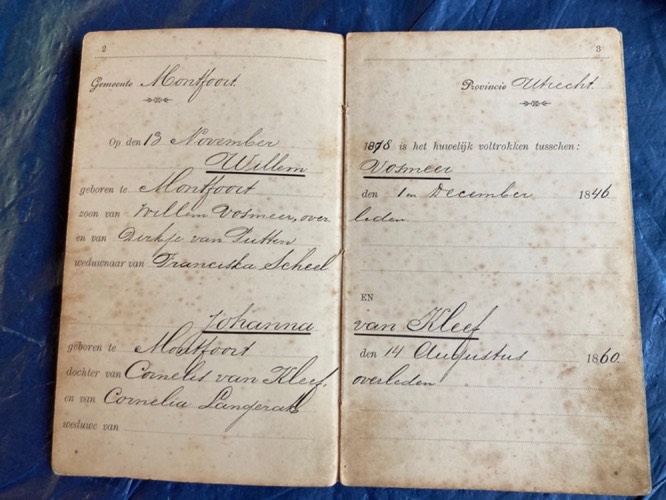 2
Gemeente Montfoort.
Op den 13 November
Willem
geboren te Montfoort
zoon van Willem Vosmeer, over
en van Dirkje van Putten
weduwnaar van Franciska Scheel
Johanna
geboren te Montfoort
dochter van Cornelis van Kleef,
en van Cornelia Langerak
weduwe van
3
Provincie Utrecht.
is het huwelijk voltrokken tusschen:
Vosmeer
den 1en December 1846
leden
EN
van Kleef
den 14 Augustus 1860.
overleden